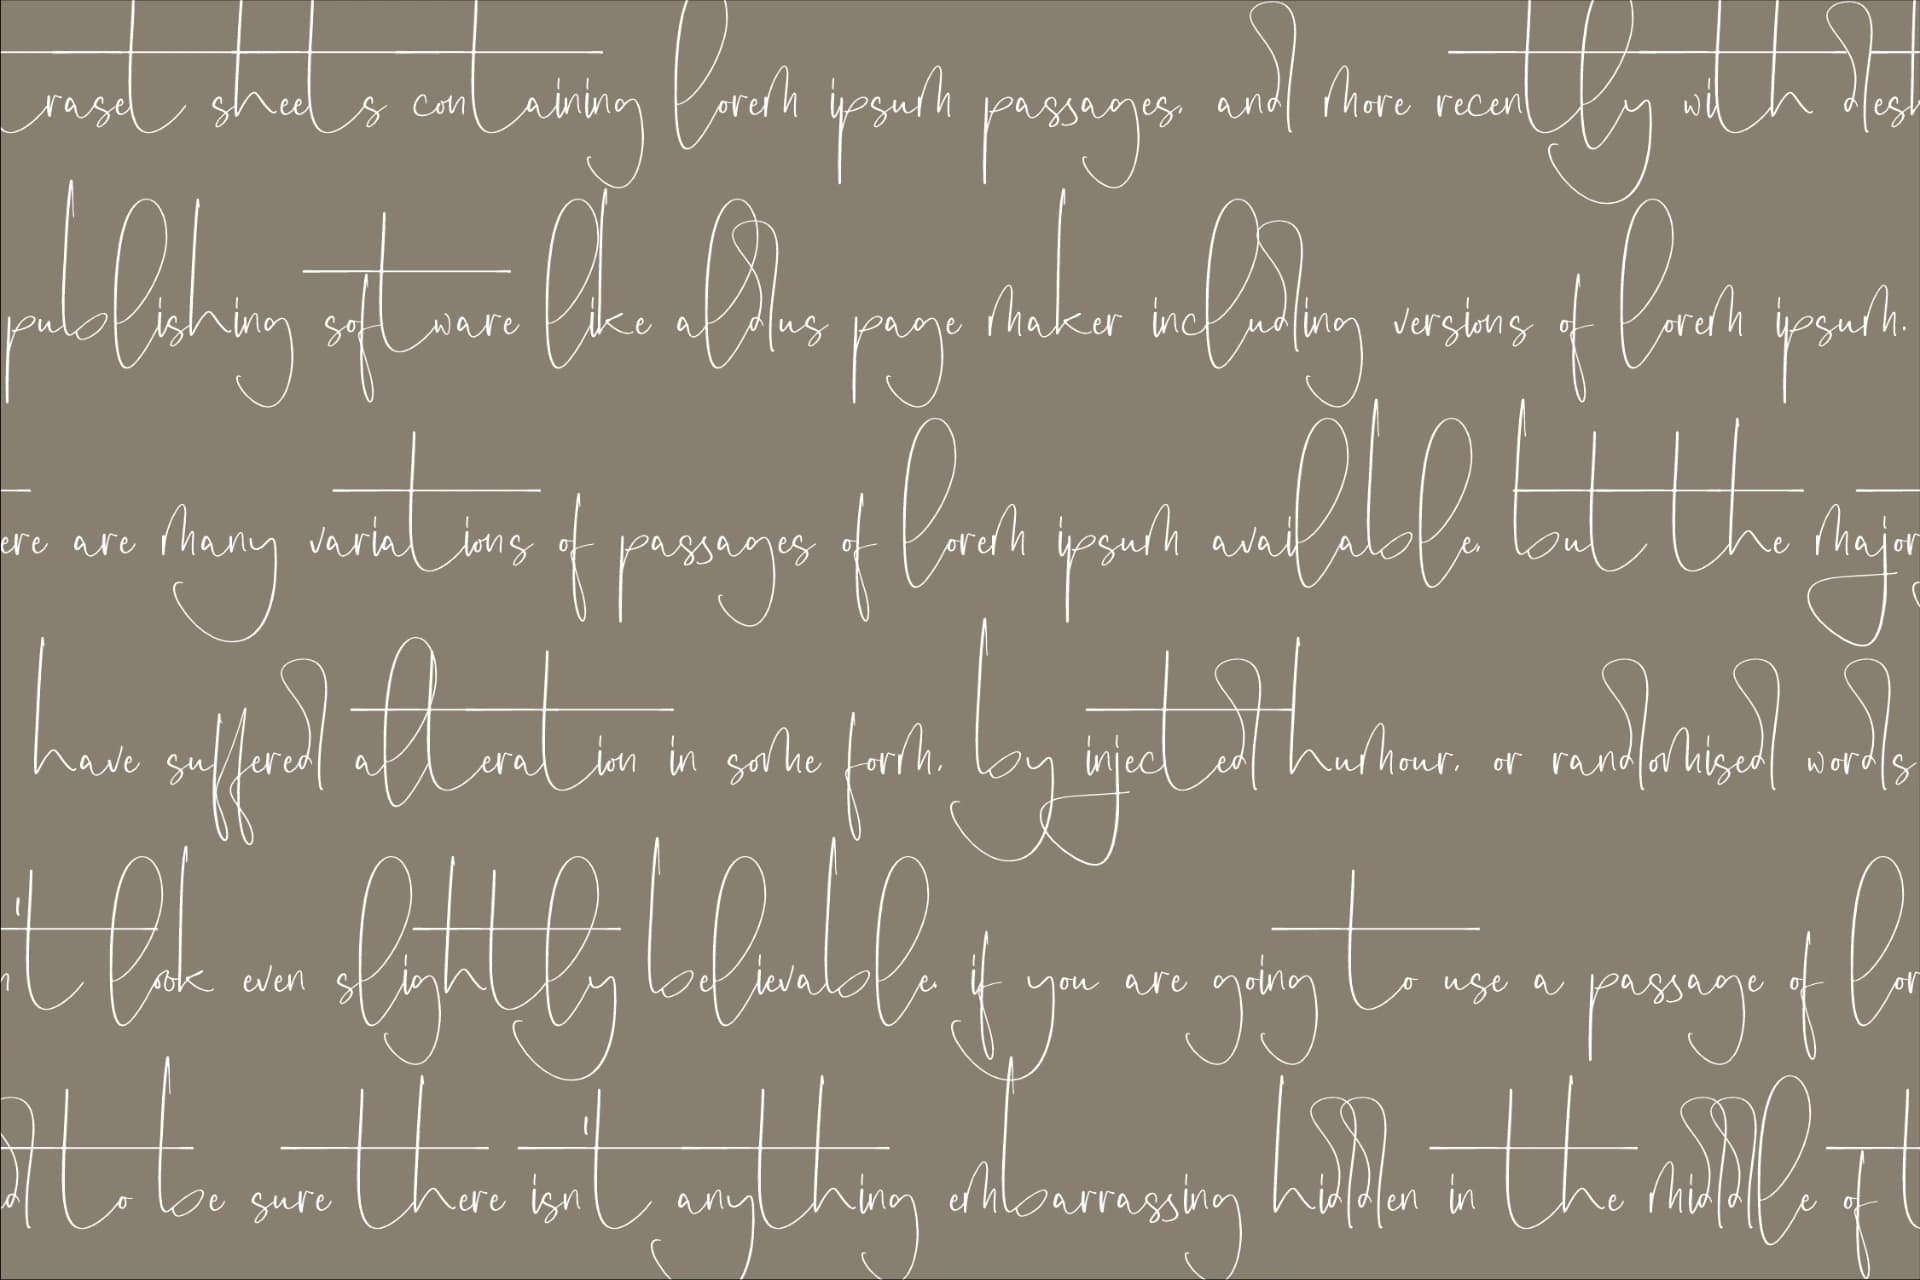 raset sheets containing lorem ipsum passages, and more recently with desk
publishing software like aldus page maker including versions of lorem ipsum.
ere are many variations of passages of lorem ipsum available, but the major
have suffered alteration in some form, by injected humour, or randomised words
n't look even slightly believable. if you are going to use a passage of lor
d to be sure there isn't anything embarrassing hidden in the middle of t